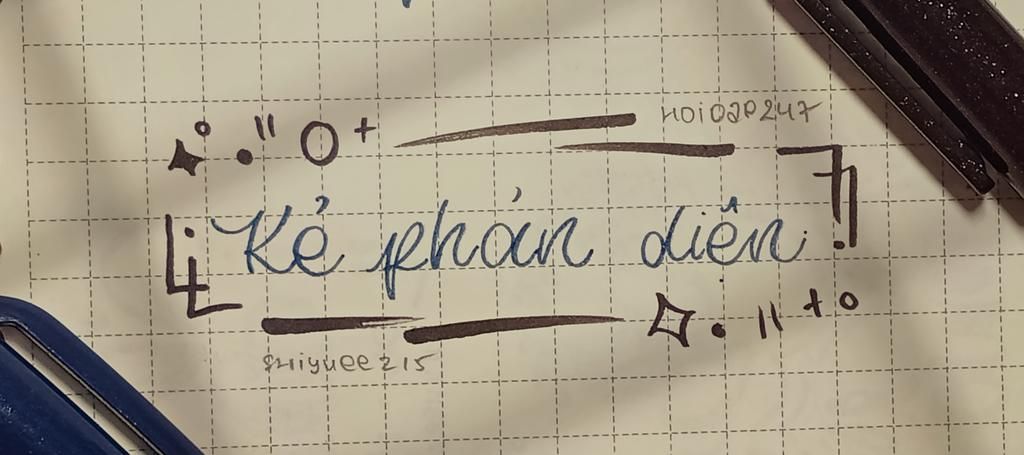 HOIDAP247
Kẻ phản diện
shiyuee215